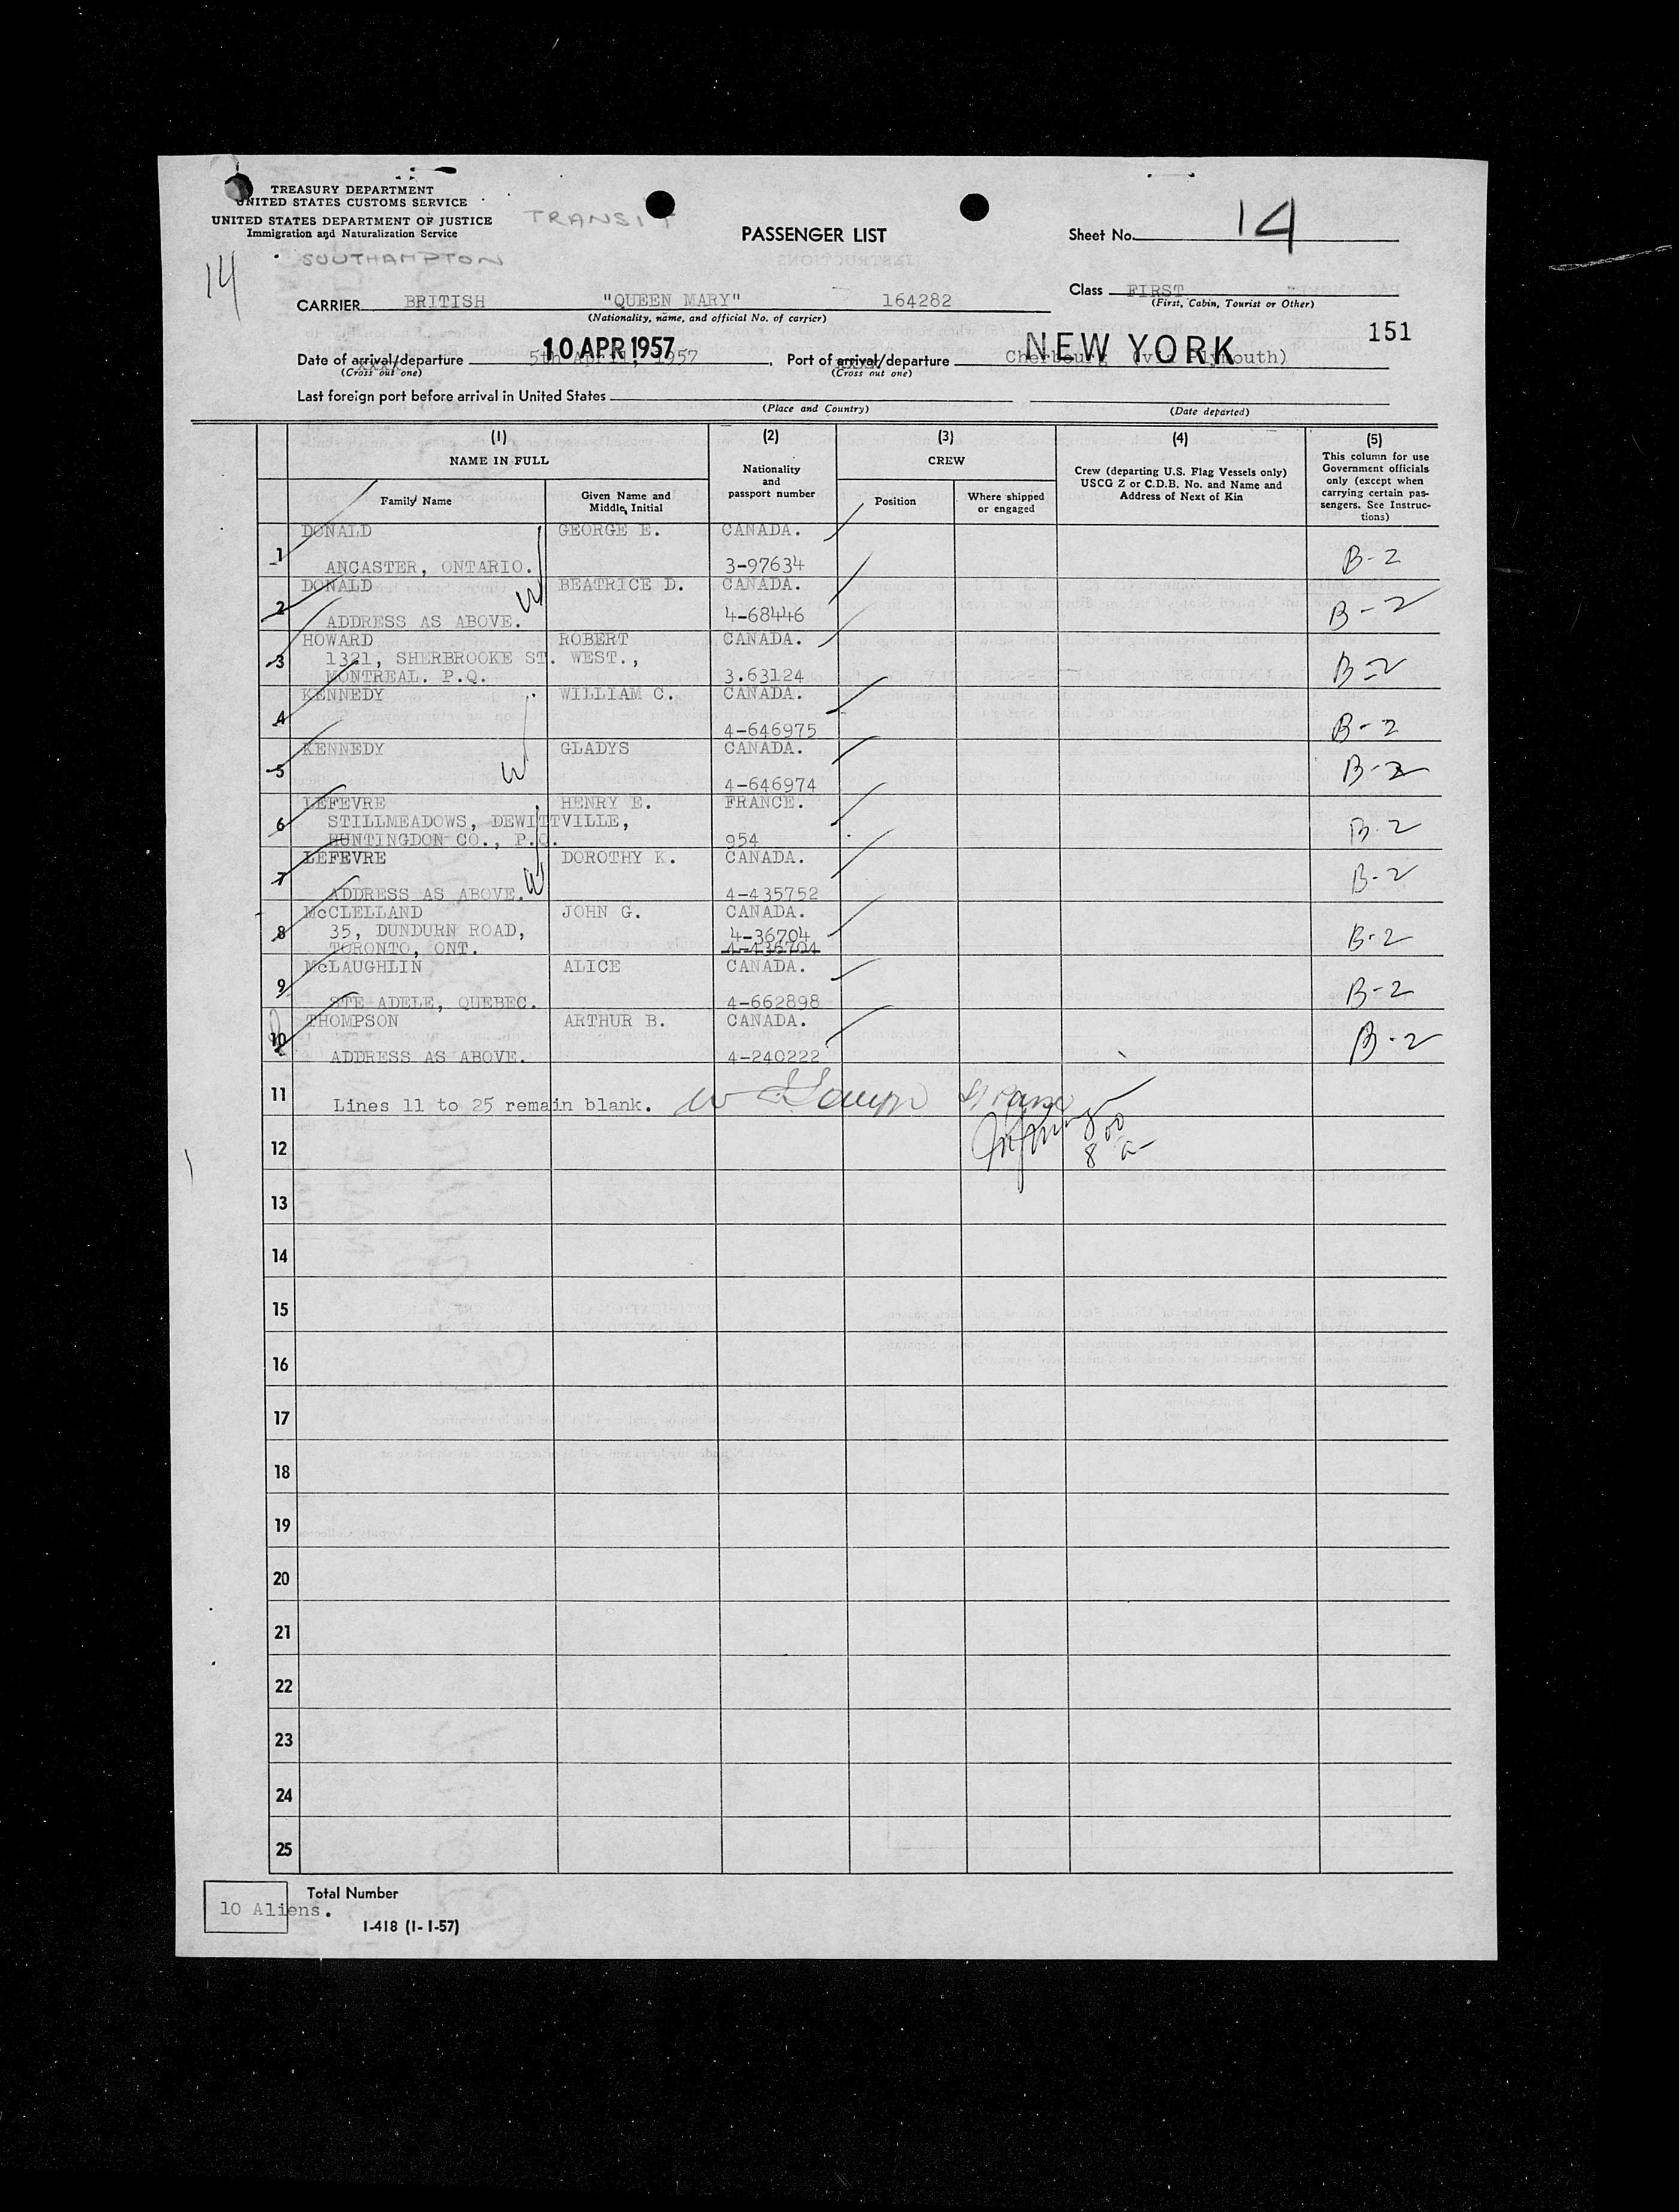 TREASURY DEPARTMENT
UNITED STATES CUSTOMS SERVICE
UNITED STATES DEPARTMENT OF JUSTICE
Immigration and Naturalization Service
TRANSIT
SOUTHAMPTON
14
PASSENGER LIST
Sheet No. 14
CARRIER BRITISH "QUEEN MARY" 164282
(Nationality, name, and official No. of carrier)
Class FIRST
(First, Cabin, Tourist or Other)
151
10 APR 1957
NEW YORK
Date of arrival/departure 5th April, 1957, Port of arrival/departure Cherbourg (via Plymouth)
(Cross out one) (Cross out one)
Last foreign port before arrival in United States
(Place and Country) (Date departed)
(1) (2) (3) (4) (5)
NAME IN FULL
Family Name
Given Name and
Middle Initial
Nationality
and
passport number
CREW
Position
Where shipped
or engaged
Crew (departing U.S. Flag Vessels only)
USCG Z or C.D.B. No. and Name and
Address of Next of Kin
This column for use
Government officials
only (except when
carrying certain pas-
sengers. See Instruc-
tions)
DONALD GEORGE E. CANADA.
1 ANCASTER, ONTARIO. 3-97634 B-2
DONALD BEATRICE D. CANADA.
2 ADDRESS AS ABOVE. 4-68446 B-2
HOWARD ROBERT CANADA.
3 1321, SHERBROOKE ST. WEST., B-2
MONTREAL. P.Q. 3.63124
KENNEDY WILLIAM C. CANADA.
4 4-646975 B-2
KENNEDY GLADYS CANADA.
5 4-646974 B-2
LEFEVRE HENRY E. FRANCE.
6 STILLMEADOWS, DEWITTVILLE, B-2
HUNTINGDON CO., P.Q. 954
LEFEVRE DOROTHY K. CANADA.
7 ADDRESS AS ABOVE. 4-435752 B-2
McCLELLAND JOHN G. CANADA.
8 35, DUNDURN ROAD, 4-36704 B-2
TORONTO, ONT. 4-436704
McLAUGHLIN ALICE CANADA.
9 STE ADELE, QUEBEC. 4-662898 B-2
THOMPSON ARTHUR B. CANADA.
10 ADDRESS AS ABOVE. 4-240222 B-2
11 Lines 11 to 25 remain blank.
12
13
14
15
16
17
18
19
20
21
22
23
24
25
10 Aliens.
Total Number
I-418 (1-1-57)